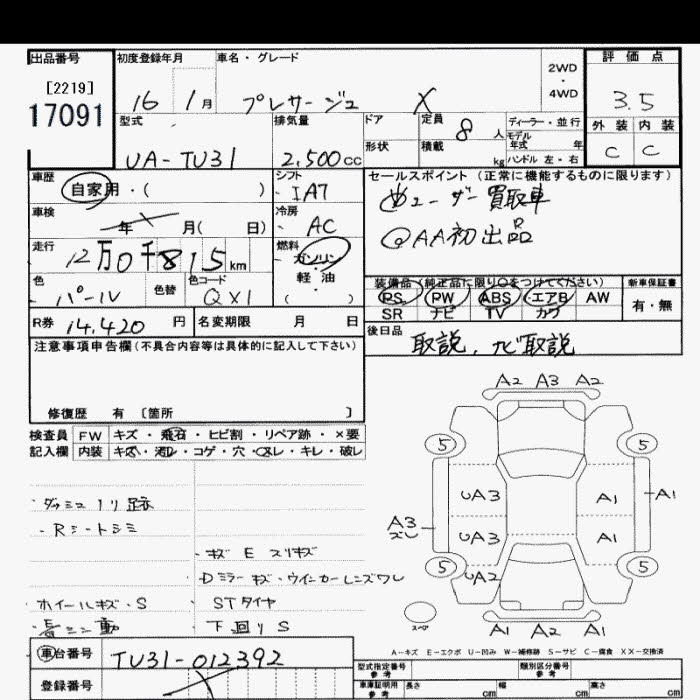 出品番号
[2219]
17091
初度登録年月
16 1月
車名・グレード
プレサージュ X
2WD
・
4WD
評価点
3.5
外装 内装
C C
型式
UA-TU31
排気量
2,500cc
ドア
形状
定員 8人
積載 kg
ディーラー・並行
モデル年式 年
ハンドル 左・右
車歴
自家用・( )
シフト
IA7
車検
年 月( 日)
冷房
AC
走行
12万0千815km
燃料
ガソリン
・
軽・油
( )
色
パール
色替
色コード
QX1
R券 14,420円
名変期限 月 日
セールスポイント(正常に機能するものに限ります)
ユーザー買取車
AA初出品
装備品(純正品に限り○をつけてください)
PS PW ABS エアB AW
SR ナビ TV カワ
新車保証書
有・無
後日品
取説、ナビ取説
注意事項申告欄(不具合内容等は具体的に記入して下さい)
修復歴 有 [箇所 ]
検査員
記入欄
FW キズ・飛石・ヒビ割・リペア跡・×要
内装 キズ・汚レ・コゲ・穴・スレ・キレ・破レ
・Rシートシミ
・キズ E スリキズ
・Dミラーキズ・ウインカーレンズワレ
ホイールキズ・S
STタイヤ
下回りS
A2 A3 A2
5 5
UA3 A1 A1
A3
UA3 A1
5 UA2 5
スペア
A1 A2 A1
A-キズ E-エクボ U-凹み W-補修跡 S-サビ C-腐食 XX-交換済
車台番号
TU31-012392
登録番号
型式指定番号
参考
類別区分番号
参考
車庫証明用
参考
長さ cm
幅 cm
高さ cm